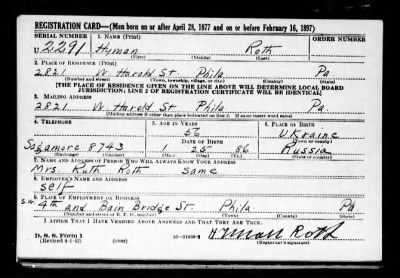 REGISTRATION CARD—(Men born on or after April 28, 1877 and on or before February 16, 1897)
SERIAL NUMBER 1. NAME (Print)
U 2291 Hyman Roth
(First) (Middle) (Last)
2. PLACE OF RESIDENCE (Print)
2821 W Harold St Phila Pa
(Number and street) (Town, township, village, or city) (County) (State)
[THE PLACE OF RESIDENCE GIVEN ON THE LINE ABOVE WILL DETERMINE LOCAL BOARD
JURISDICTION; LINE 2 OF REGISTRATION CERTIFICATE WILL BE IDENTICAL]
3. MAILING ADDRESS
2821 W Harold St Phila Pa
[Mailing address if other than place indicated on line 2. If same insert word same]
4. TELEPHONE 5. AGE IN YEARS 6. PLACE OF BIRTH
56 Ukraine
DATE OF BIRTH (Town or county)
Sagamore 8743 1 25 86 Russia
(Exchange) (Number) (Mo.) (Day) (Yr.) (State or country)
7. NAME AND ADDRESS OF PERSON WHO WILL ALWAYS KNOW YOUR ADDRESS
Mrs. Ruth Roth same
8. EMPLOYER'S NAME AND ADDRESS
self
9. PLACE OF EMPLOYMENT OR BUSINESS
S.W. 4th and Bain Bridge St. Phila. Pa
(Number and street or R. F. D. number) (Town) (County) (State)
I AFFIRM THAT I HAVE VERIFIED ABOVE ANSWERS AND THAT THEY ARE TRUE.
D. S. S. Form 1
(Revised 4-1-42) (over) Hyman Roth
(Registrant's signature)